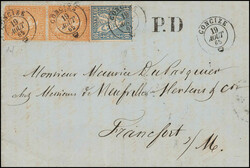 CORCIER
19
65
P.D
CORCIER
19
65
Monsieur Maurice DuPasquier
chez Messieurs de Neufville-Mertens & Cie
Francfort s/M.